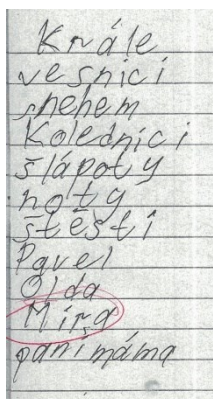 Krále
vesnicí
sněhem
Koledníci
šlápoty
noty
štěstí
Pavel
Olda
Mirg
panímáma